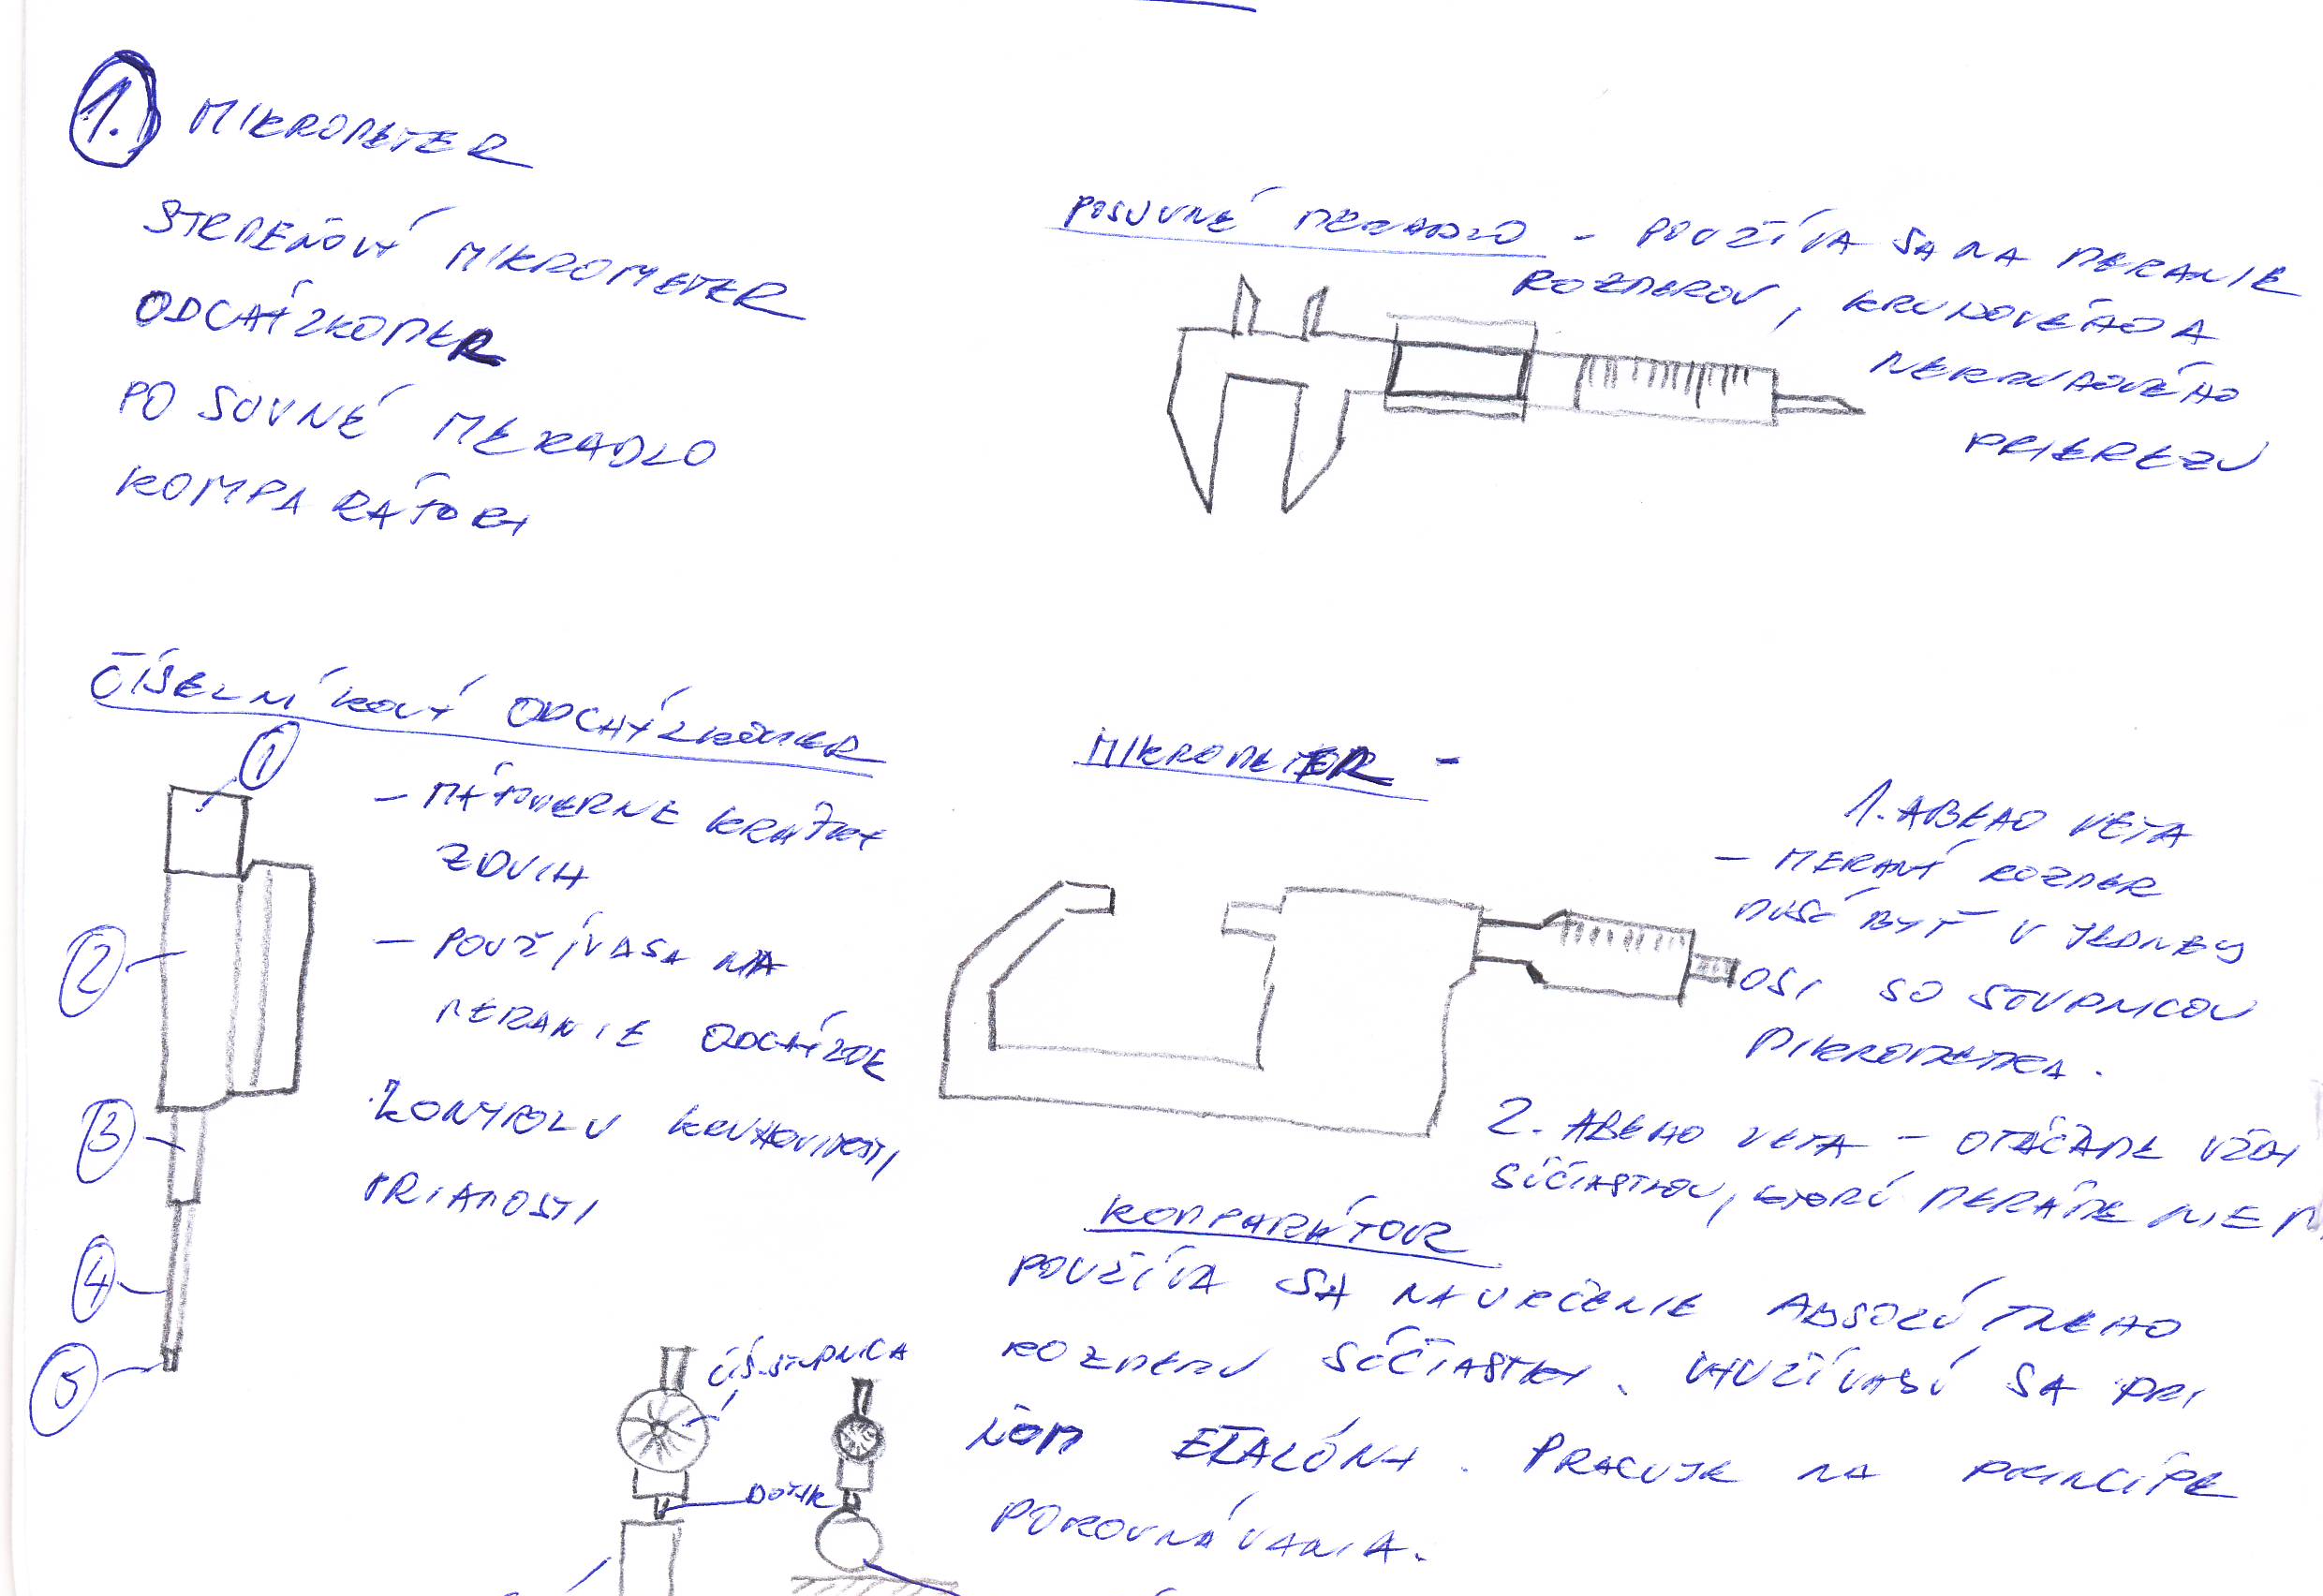 1. MIKROMETER
STRMEŇOVÝ MIKROMETER
ODCHÝLKOMER
POSUVNÉ MERADLO
KOMPARÁTORY
POSUVNÉ MERADLO - POUŽÍVA SA NA MERANIE
ROZMEROV, KRUHOVÉHO A
NEKRUHOVÉHO
PRIEREZU
ČÍSELNÍKOVÝ ODCHÝLKOMER
1
- MÁ POMERNE KRÁTKY
ZDVIH
2
- POUŽÍVA SA NA
MERANIE ODCHÝLOK
KONTROLU KRUHOVITOSTI,
PRIAMOSTI
3
4
5
MIKROMETER -
1. ABBEHO VETA
- MERANÝ ROZMER
MUSÍ BYŤ V JEDNEJ
OSI SO STUPNICOU
MIKROMETRA.
2. ABBEHO VETA - OTÁČAME VŽDY
SÚČIASTKOU, KTORÚ MERÁME NIE M
KOMPARÁTOR
POUŽÍVA SA NA URČENIE ABSOLÚTNEHO
ROZMERU SÚČIASTKY. VYUŽÍVAJÚ SA PRI
ŇOM ETALÓNY. PRACUJE NA PRINCÍPE
POROVNÁVANIA.
ČÍS. STUPNICA
DOTYK